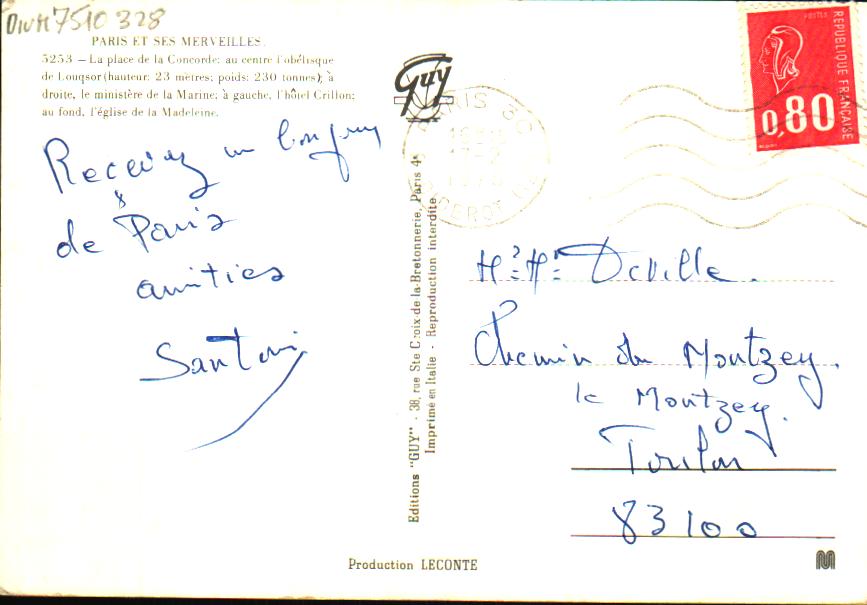 DIVM7510328
PARIS ET SES MERVEILLES.
5253 — La place de la Concorde: au centre l'obélisque
de Louqsor (hauteur: 23 mètres; poids: 230 tonnes); à
droite, le ministère de la Marine; à gauche, l'hôtel Crillon;
au fond, l'église de la Madeleine.
Recevez un
de Paris
amitiés
Santoni
Guy
Editions "GUY" - 38, rue Ste Croix-de-la-Bretonnerie, Paris 4e
Imprimé en Italie - Reproduction interdite
PARIS 80
DIDEROT
POSTES
REPUBLIQUE FRANÇAISE
0,80
Deville.
Chemin du Montzey.
le Montzey.
Toulon
83100
Production LECONTE
M